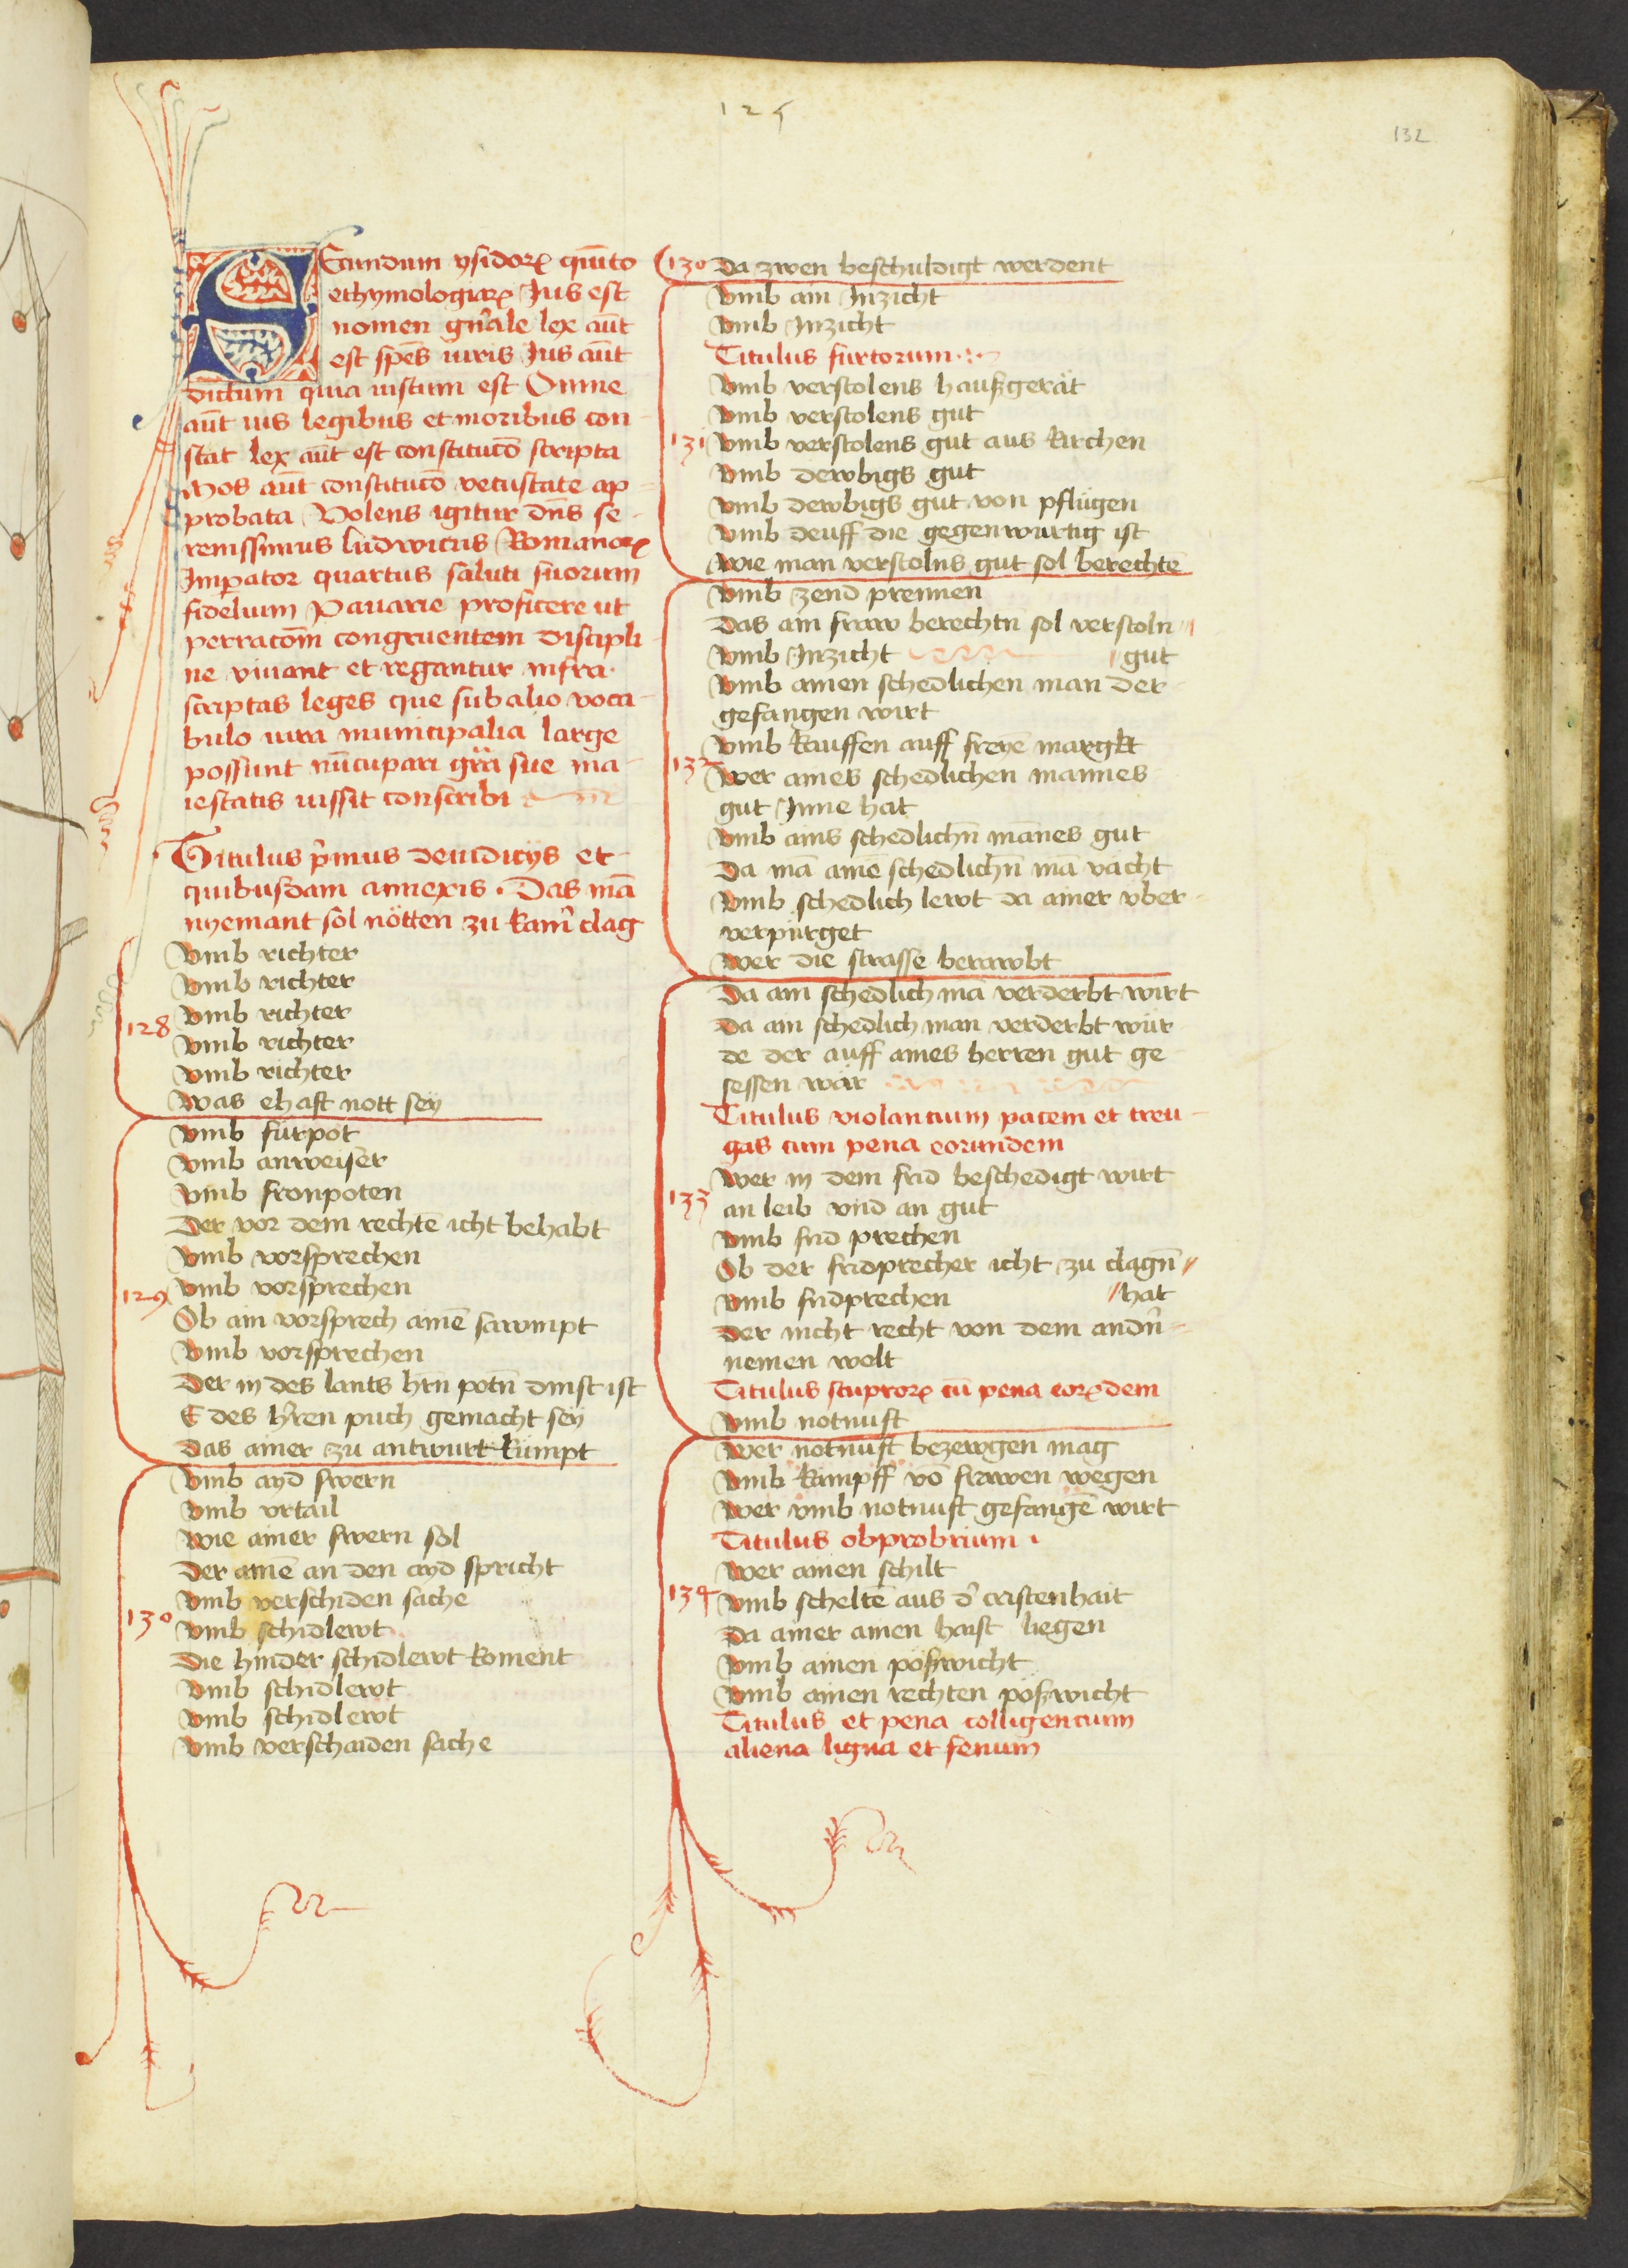 125
132
Secundum ysidorꝝ quīto
ethymologiarꝝ Jus est
nomen gn̄ale lex aūt
est sp̄es iuris Jus aūt
dictum quia iustum est Omne
aūt ius legibus et moribus con
stat lex aūt est constitucō scripta
Mos aūt constitucō vetustate ap
probata Volens igitur dn̄s se
renissimus ludwicus Romanorꝝ
Imperator quartus saluti suorum
fidelium Pauarie proficere ut
per racōm congruentem discipli
ne viuant et regantur infra
scriptas leges que sub alio voca
bulo iura municipalia large
possunt nūcupari gr̄a sue ma
iestatis iussit conscribi
Titulus p̄mus de iudicijs et
quibusdam annexis . Das mā
nyemant sol nötten zu kamr̄ clag
Vmb richter
Vmb richter
128 Vmb richter
Vmb richter
Vmb richter
Was ehaft nott sey
Vmb fürpot
Vmb anweiser
Vmb fronpoten
Der vor dem rechtē icht behabt
Vmb vorsprechen
129 Vmb vorsprechen
Ob ain vorsprech ainē sawmpt
Vmb vorsprechen
Der in des lants hr̄n potn̄ dinst ist
E des hr̄ren puch gemacht sey
Das ainer zu antwurt kümpt
Vmb ayd swern
Vmb vrtail
Wie ainer swern sol
Der ainē an den ayd spricht
Vmb verschiden sache
130 Vmb schidlewt
Die hinder schidlewt koment
Vmb schidlewt
Vmb schidlewt
Vmb verschaiden sache
130 Da zwen beschuldigt werdent
Vmb ain Inzicht
Vmb Inzicht
Titulus furtorum
Vmb verstolens haußgerät
Vmb verstolens gut
131 Vmb verstolens gut aus kirchen
Vmb dewbigs gut
Vmb dewbigs gut von pflügen
Vmb deuff die gegenwurtig ist
Wie man verstolns gut sol berechtē
Vmb zend prennen
Das ain fraw berechtn̄ sol verstoln
Vmb Inzicht gut
Vmb ainen schedlichen man der
gefangen wirt
Vmb kauffen auff freyē margkt
132 Wer aines schedlichen mannes
gut Inne hat
Vmb ains schedlichn̄ mānes gut
Da mā ainē schedlichn̄ mā vächt
Vmb schedlich lewt da ainer vber
verpürget
Wer die strasse berawbt
Da ain schedlich mā verderbt wirt
Da ain schedlich man verderbt wür
de der auff aines herren gut ge
sessen wär
Titulus violancium pacem et treu
gas cum pena eorundem
Wer in dem frid beschedigt wirt
133 an leib vnd an gut
Vmb frid prechen
Ob der fridprecher icht zu clagn̄
Vmb fridprechen hat
Der nicht recht von dem andn̄
nemen wolt
Titulus stuprorꝝ cū pena eorꝝdem
Vmb notnuft
Wer notnuft bezewgen mag
Vmb kampff vō frawen wegen
Wer vmb notnuft gefangē wirt
Titulus obprobrium
Wer ainen schilt
134 Vmb scheltē aus d̄ cristenhait
Da ainer ainen haist liegen
Vmb ainen pößwicht
Vmb ainen rechten poßwicht
Titulus et pena colligencium
aliena ligna et fenum